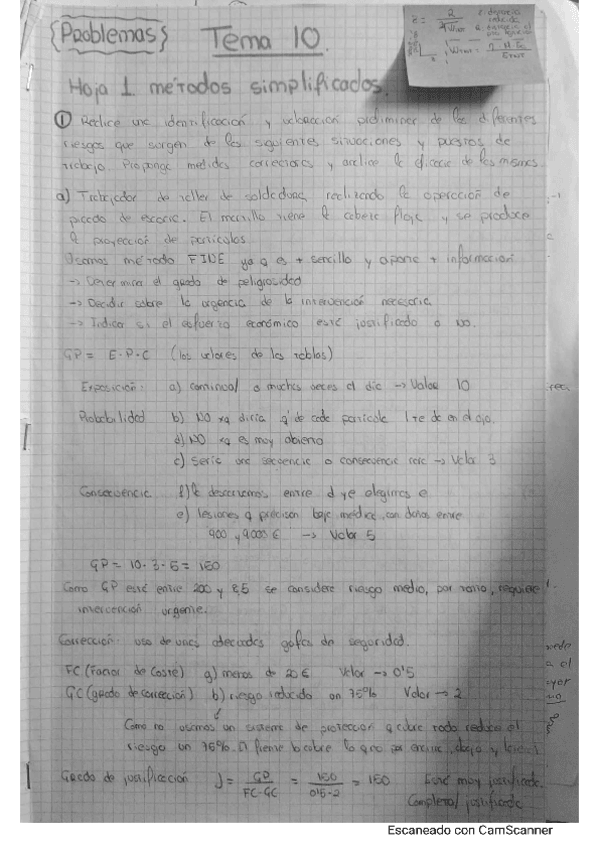 {Problemas} Tema 10
Hoja 1 métodos simplificados.
① Realice una identificación y valoración preliminar de los diferentes
riesgos que surgen de las siguientes situaciones y puestos de
trabajo. Proponga medidas correctoras y analice la eficacia de las mismas
a) Trabajador de taller de soldadura, realizando la operación de
picado de escoria. El martillo tiene la cabeza floja y se produce
la proyección de partículas.
Usamos método FINE ya q es + sencillo y aporta + información
→ Determina el grado de peligrosidad
→ Decidir sobre la urgencia de la intervención necesaria
→ Indica si el esfuerzo económico está justificado o no.
GP = E·P·C (los valores de las tablas)
Exposición: a) continua/ o muchas veces al día → Valor 10
Probabilidad b) NO xq diría q' de cada partícula 1 te da en el ojo.
d) NO xq es muy abierto
c) sería una secuencia o consecuencia rara → Valor 3
Consecuencia f) la descartamos entre d y e elegimos e
e) lesiones q precisan baja médica, con daños entre
900 y 9000 € → Valor 5
GP = 10·3·5 = 150
Como GP está entre 200 y 85 se considera riesgo medio, por tanto, requiere
intervención urgente.
Corrección: uso de unas adecuadas gafas de seguridad.
FC (Factor de Coste) g) menos de 20€ Valor → 0'5
GC (grado de corrección) b) riesgo reducido un 75% Valor → 2
Como no usamos un sistema de protección q cubre todo reduce el
riesgo un 75%.
Grado de justificación J = GP / FC·GC = 150 / 0'5·2 = 150 Está muy justificado.
Completa/ justificada
Escaneado con CamScanner